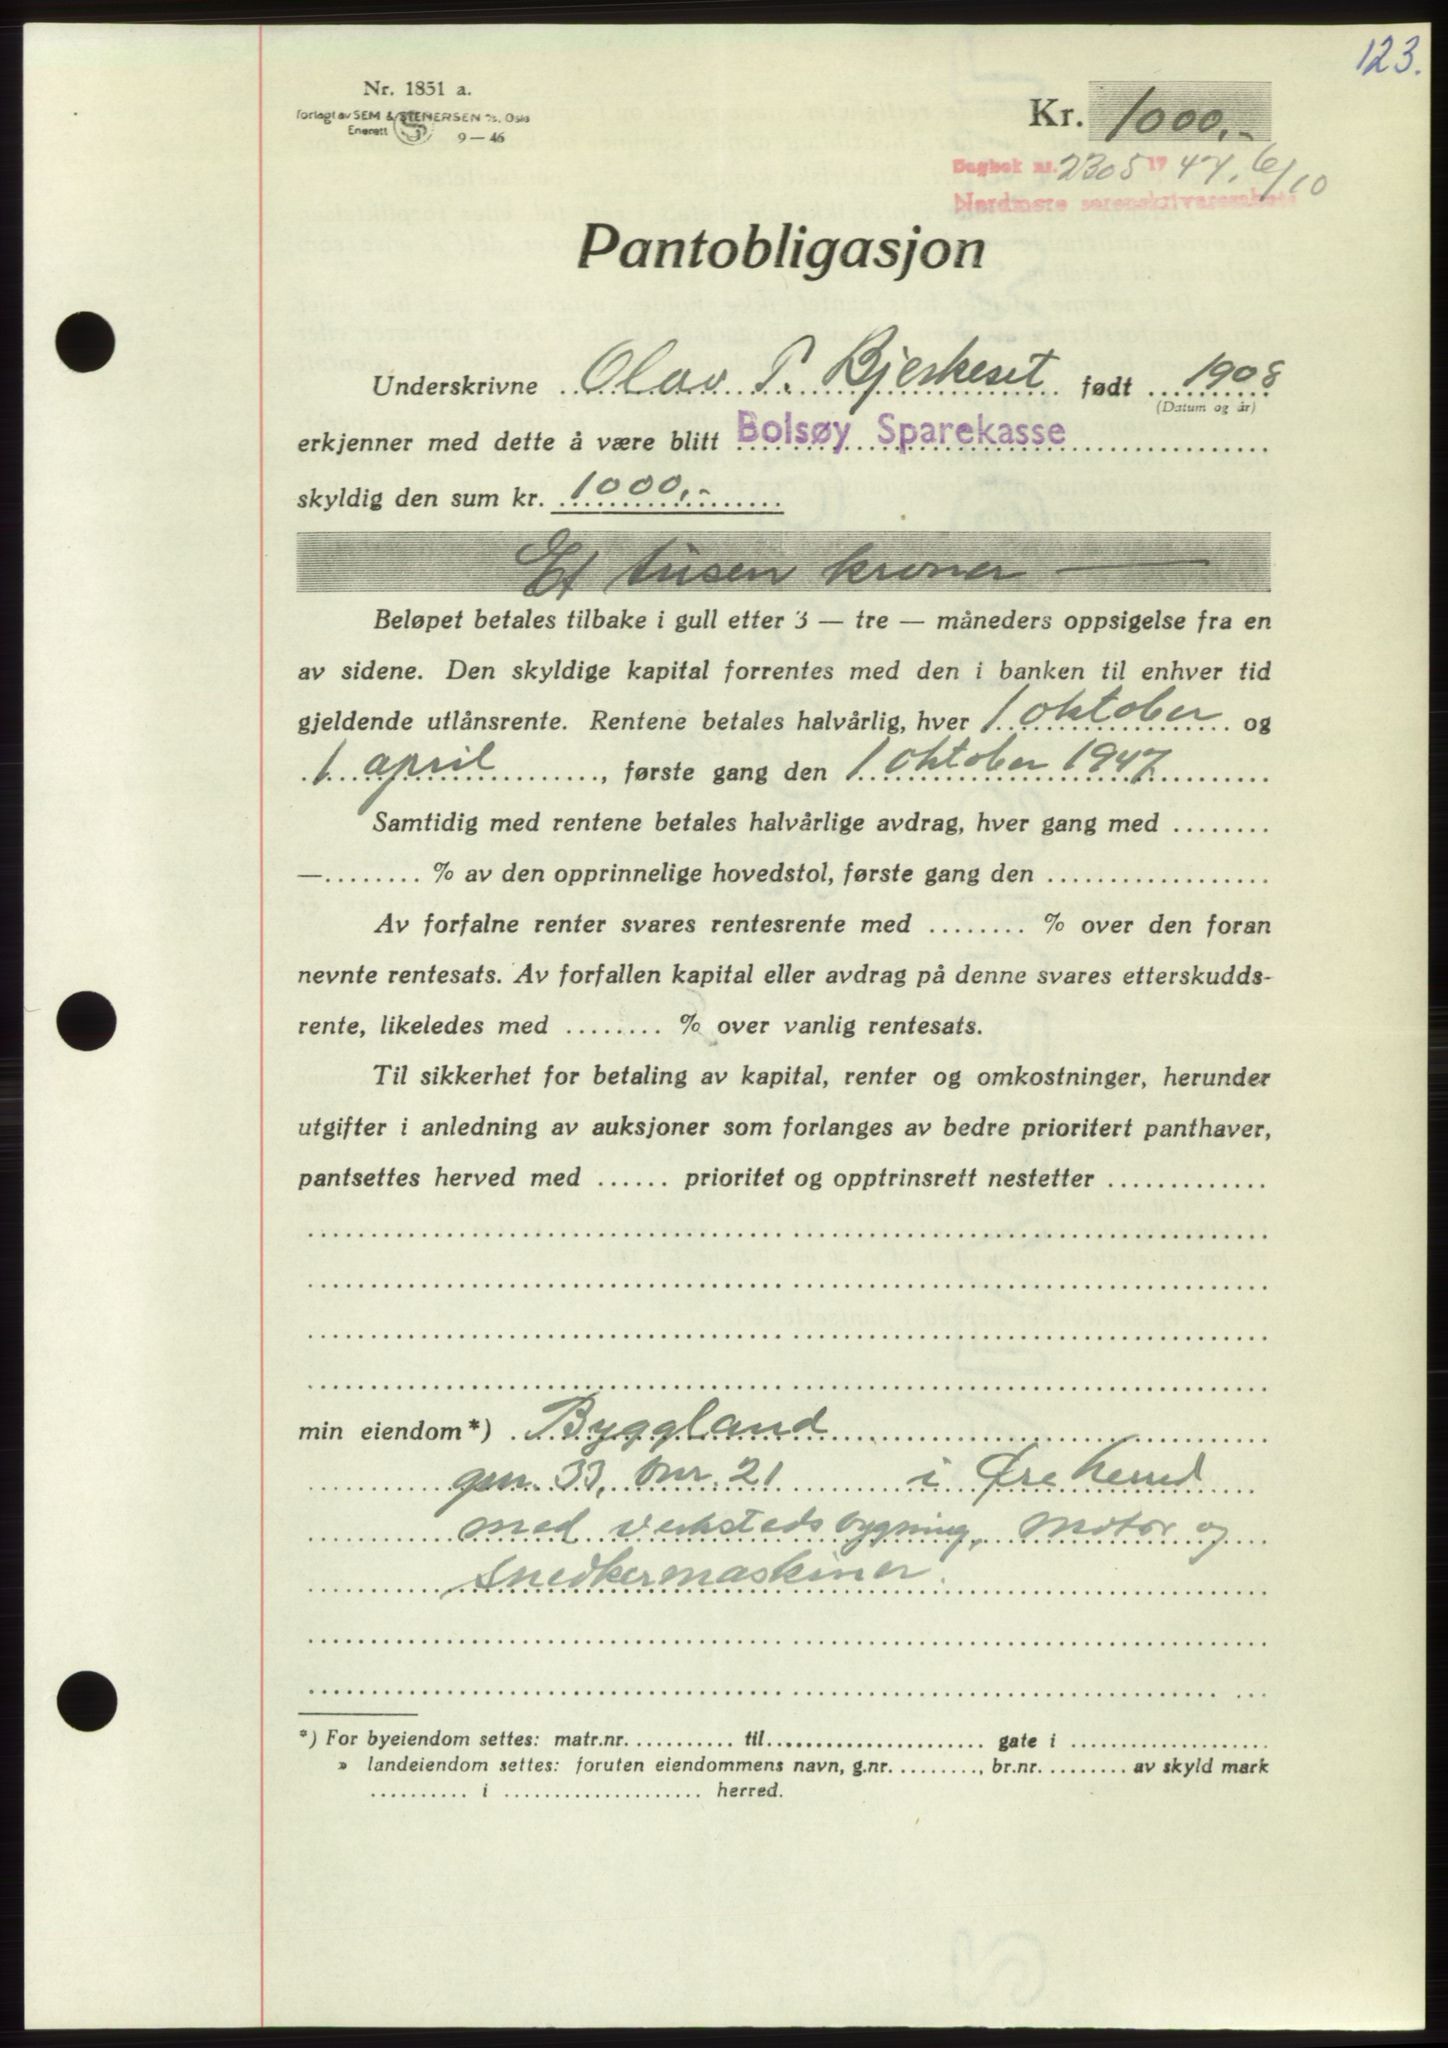 123.
Nr. 1851 a.
Forlagt av SEM & STENERSEN A/S, Oslo
Enerett 9 — 46
Kr. 1000,-
Dagbok nr. 2305 19 47. 6/10
Nordmøre sorenskriverembete
Pantobligasjon
Underskrivne Olav P. Bjerkeset født 1908
(Datum og år)
erkjenner med dette å være blitt Bolsøy Sparekasse
skyldig den sum kr. 1000,-
Et tusen kroner —
Beløpet betales tilbake i gull etter 3 — tre — måneders oppsigelse fra en
av sidene. Den skyldige kapital forrentes med den i banken til enhver tid
gjeldende utlånsrente. Rentene betales halvårlig, hver 1 oktober og
1 april, første gang den 1 oktober 1947
Samtidig med rentene betales halvårlige avdrag, hver gang med ........
—........ % av den opprinnelige hovedstol, første gang den ..................
Av forfalne renter svares rentesrente med ........ % over den foran
nevnte rentesats. Av forfallen kapital eller avdrag på denne svares etterskudds-
rente, likeledes med ........ % over vanlig rentesats.
Til sikkerhet for betaling av kapital, renter og omkostninger, herunder
utgifter i anledning av auksjoner som forlanges av bedre prioritert panthaver,
pantsettes herved med ...... prioritet og opptrinsrett nestetter .............
min eiendom*) Byggland
gnr. 33, bnr. 21 i Øre herred
med verkstedsbygning, motor og
snedkermaskiner.
*) For byeiendom settes: matr.nr. .......... til...................... gate i ....................
» landeiendom settes: foruten eiendommens navn, g.nr. ........., br.nr. ......... av skyld mark
.......... i .................... herred.